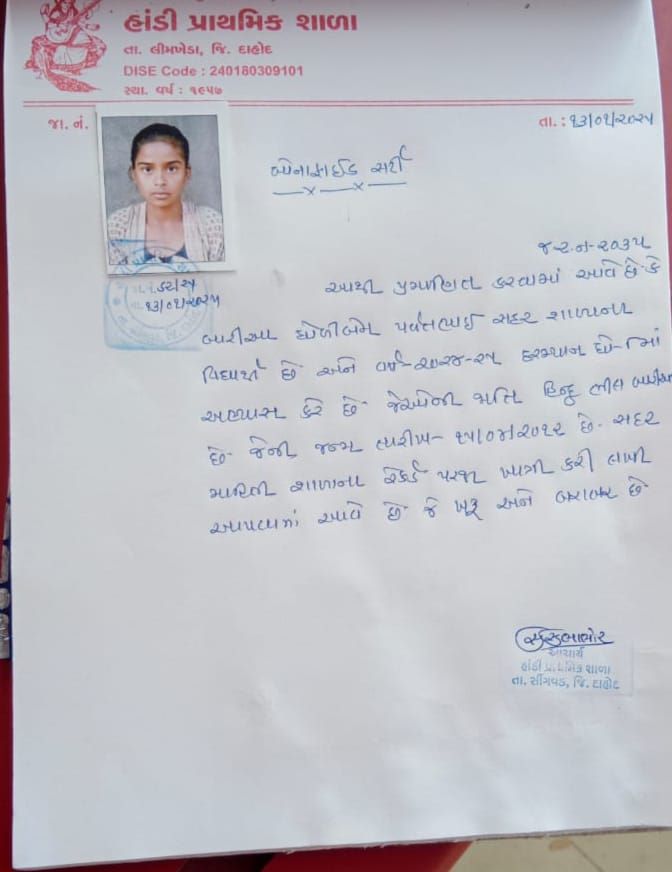 હાંડી પ્રાથમિક શાળા
તા. લીમખેડા, જિ. દાહોદ
DISE Code : 240180309101
સ્થા. વર્ષ : ૧૯૫૭
જા. નં.
તા. : ૧૩/૦૧/૨૦૨૫
બોનાફાઈડ સર્ટી
જ.ર.ન-૨૦૩૫
તા. ૧૩/૦૧/૨૦૨૫
આથી પ્રમાણિત કરવામાં આવે છે કે
બારીઆ પર્વતભાઈ સદર શાળાના
વિદ્યાર્થી છે અને વર્ષ-૨૦૨૪-૨૫ દરમ્યાન ધો-૮માં
અભ્યાસ કરે છે જેઓની જાતિ હિન્દુ ભીલ બારીઆ
છે. જેની જન્મ તારીખ- ૧૫/૦૪/૨૦૧૨ છે. સદર
માહિતી શાળાના રેકર્ડ પરથી ખાત્રી કરી લખી
આપવામાં આવે છે જે ખરૂ અને બરાબર છે
આચાર્ય
હાંડી પ્રાથમિક શાળા
તા. સીંગવડ, જિ. દાહોદ